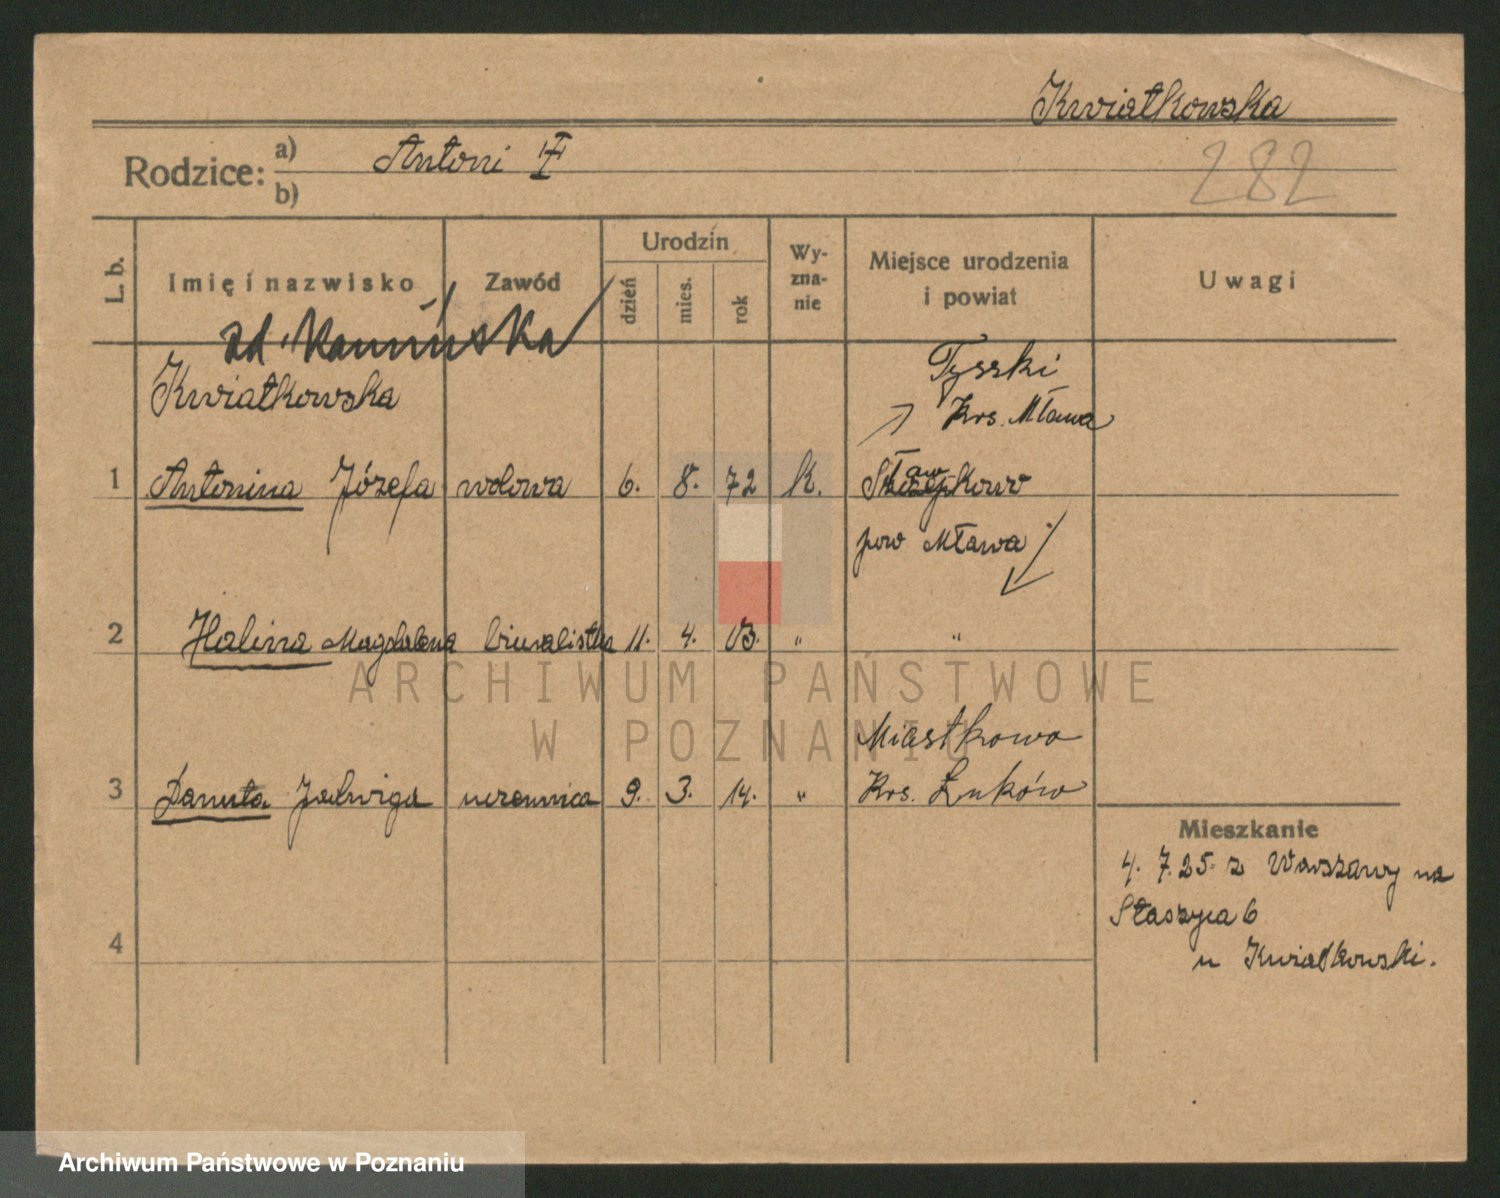 Kwiatkowska
Rodzice: a) Antoni
b)
282
L. b. Imię i nazwisko Zawód Urodzin dzień mies. rok Wy-zna-nie Miejsce urodzenia i powiat Uwagi
zd. Kamińska
Kwiatkowska
Tyszki
Krs. Mława
1 Antonina Józefa wdowa 6. 8. 72 k.
pow Mława
2 Halina Magdalena biuralistka 11. 4. 03. " "
Miastkowo
3 Danuta Jadwiga uczennica 9. 3. 14. " Krs. Łuków
Mieszkanie
4. 7. 25. z Warszawy na
Staszyca 6
u Kwiatkowski.
4
ARCHIWUM PAŃSTWOWE
W POZNANIU
Archiwum Państwowe w Poznaniu